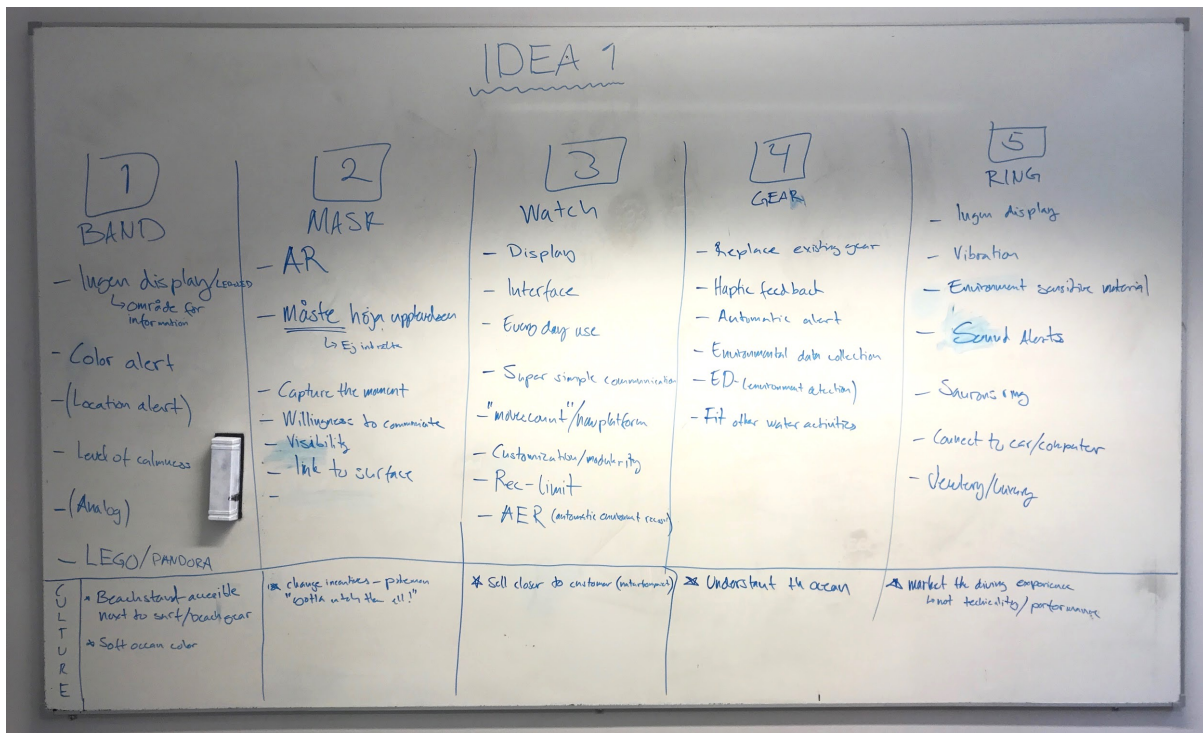 IDEA 1
1
BAND
- Ingen display/
↳ område för
information
- Color alert
- (Location alert)
- Level of calmness
- (Analog)
- LEGO/PANDORA
2
MASK
- AR
- Måste höja upplevelsen
↳ Ej inkräkta
- Capture the moment
- Willingness to communicate
- Visibility
- Link to surface
-
3
Watch
- Display
- Interface
- Every day use
- Super simple communication
- "movescount"/new platform
- Customization/modularity
- Rec-limit
- AER (automatic enviroment record)
4
GEAR
- Replace existing gear
- Haptic feedback
- Automatic alert
- Environmental data collection
- ED- (environment detection)
- Fit other water activities
5
RING
- Ingen display
- Vibration
- Environment sensitive material
- Sound Alerts
- Saurons ring
- Connect to car/computer
- Jewlery/luxury
CULTURE
* Beachstand-accesible
next to surf/beachgear
* Soft ocean color
* change incentives - pokemon
"gotta catch them all!"
* Sell closer to customer
* Understant th ocean
* market th diving experience
↳ not technicality/performance